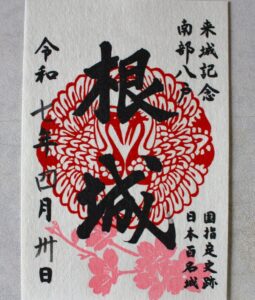 来城記念
南部八戸
根城
国指定史跡
日本百名城
令和七年四月卅日